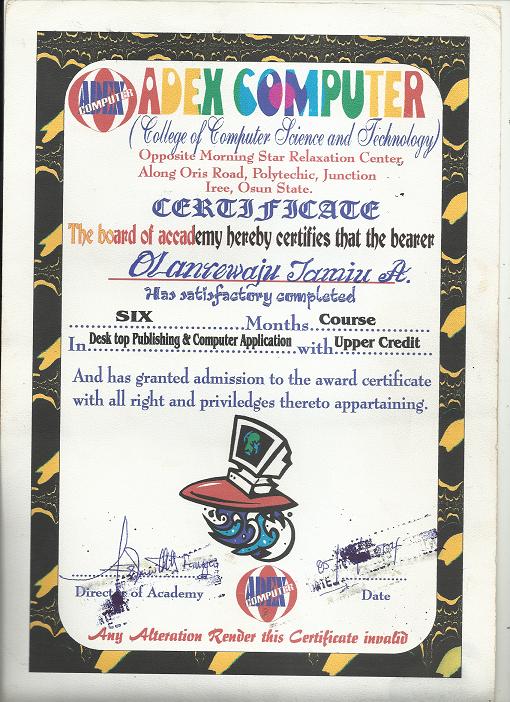 ADEX COMPUTER
ADEX COMPUTER
(College of Computer Science and Technology)
Opposite Morning Star Relaxation Center,
Along Oris Road, Polytechic, Junction
Iree, Osun State.
CERTIFICATE
The board of accademy hereby certifies that the bearer
Olanrewaju Jamiu A.
Has satisfactory completed
SIX Months Course
In Desk top Publishing & Computer Application with Upper Credit
And has granted admission to the award certificate
with all right and priviledges thereto appartaining.
Director of Academy
ADEX COMPUTER
Date
Any Alteration Render this Certificate invalid